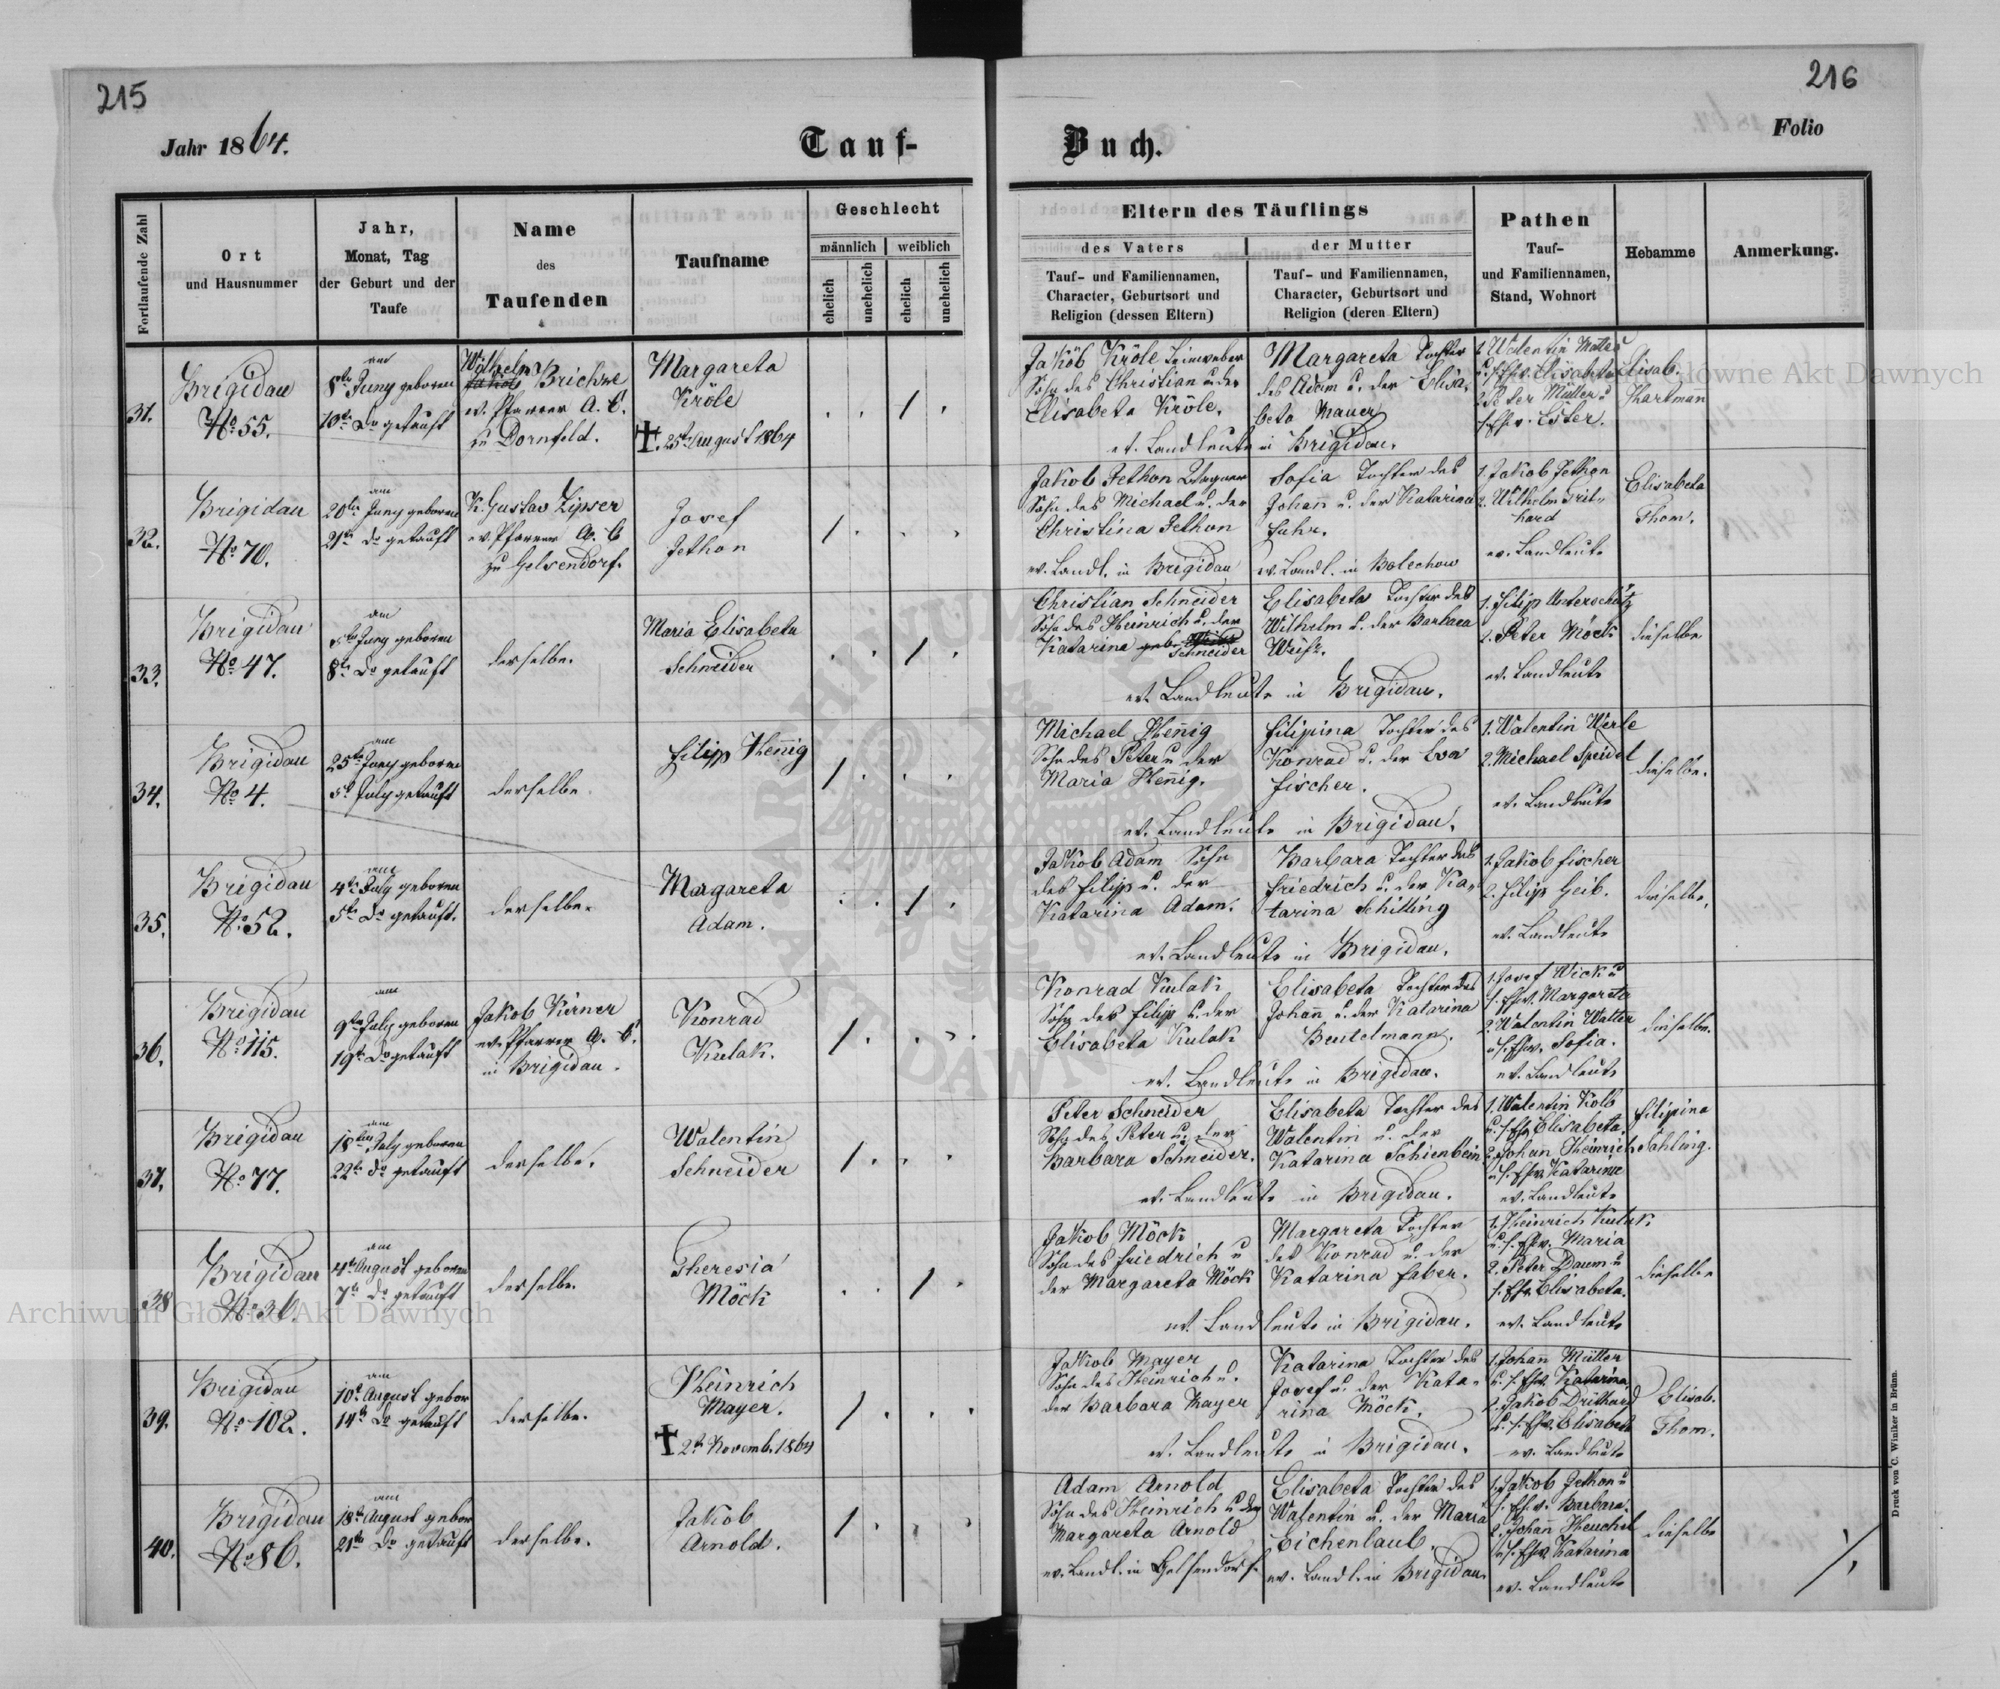 215
216
Jahr 1864.
Tauf-
Buch.
Folio
Fortlaufende Zahl
Ort
und Hausnummer
Jahr,
Monat, Tag
der Geburt und der
Taufe
Name
des
Taufenden
Taufname
Geschlecht
männlich
weiblich
ehelich
unehelich
ehelich
unehelich
Eltern des Täuflings
des Vaters
Tauf- und Familiennamen,
Character, Geburtsort und
Religion (dessen Eltern)
der Mutter
Tauf- und Familiennamen,
Character, Geburtsort und
Religion (deren Eltern)
Pathen
Tauf-
und Familiennamen,
Stand, Wohnort
Hebamme
Anmerkung.
31.
Brigidau
No 55.
am
8ten Juny geboren
10ten do getauft
Wilhelm
Jakob Brichze
ev. Pfarrer A. C.
zu Dornfeld.
Margareta
Kröle
✝. 25t August 1864
Jakob Kröle Leinweber
Sohn des Christian u. der
Elisabeta Kröle.
Margareta Tochter
des Adam u. der Elisa-
beta Mauer
ev. Landleute in Brigidau.
1. Valentin
u. s. Ehew. Elisabeta
2. Peter Müller u
s. Ehew. Ester.
Elisab.
Hartman
32.
Brigidau
No 70.
am
20ten Juny geboren
21ten do getauft
K. Gustav Zipser
ev. Pfarrer A. C
zu Gelsendorf.
Josef
Jethon
Jakob Jethon Wagner
Sohn des Michael u. der
Christina Jethon
ev. Landl. in Brigidau
Sofia Tochter des
Johann u. der Katarina
Fuhr.
ev. Landl. in Bolechow
1. Jakob Jethon
2. Wilhelm Drit-
hard
ev. Landleute
Elisabeta
Thom.
33.
Brigidau
No 47.
am
5ten July geboren
8ten do getauft
derselbe.
Maria Elisabeta
Schneider
Christian Schneider
Sohn des Heinrich u. der
Katarina geb.
Schneider
Elisabeta Tochter des
Wilhelm u. der Barbara
Weiß.
ev. Landleute in Brigidau.
1. Filip Unterschütz
2. Peter Möck
ev. Landleute
dieselbe
34.
Brigidau
No 4.
am
25ten Juny geboren
5t July getauft
derselbe.
Filipp Hennig
Michael Hennig
Sohn des Peter u der
Maria Hennig.
Filipina Tochter des
Konrad u. der Eva
Fischer.
ev. Landleute in Brigidau.
1. Valentin Werle
2. Michael Speidel
ev. Landleute
dieselbe.
35.
Brigidau
No 52.
am
4ten July geboren
5ten do getauft.
derselbe.
Margareta
Adam.
Jakob Adam Sohn
des Filip u. der
Katarina Adam.
Barbara Tochter des
Friedrich u. der Ka-
tarina Schilling
ev. Landleute in Brigidau.
1. Jakob Fischer
2. Filip Geib.
ev. Landleute
dieselbe.
36.
Brigidau
No 115.
am
9ten July geboren
19t do getauft
Jakob Kerner
ev. Pfarrer A. C.
in Brigidau.
Konrad
Kulak.
Konrad Kulak
Sohn des Filip u. der
Elisabeta Kulak
Elisabeta Tochter des
Johann u. der Katarina
Beutelmann.
ev. Landleute in Brigidau.
1. Josef Wick u
s. Ehew. Margareta
2. Valentin Walter
u s. Ehew. Sofia.
ev. Landleute
dieselbe.
37.
Brigidau
No 77.
am
18ten July geboren
22ten do getauft
derselbe.
Valentin
Schneider
Peter Schneider
Sohn des Peter u. der
Barbara Schneider.
Elisabeta Tochter des
Valentin u. der
Katarina Schienbein
ev. Landleute in Brigidau.
1. Valentin Kolb
u. s. Ehew Elisabeta.
2. Johan Heinrich
u s. Ehew Katarina
ev. Landleute
Filipina
Sahling.
38
Brigidau
No 36.
am
4ten August geboren
7t do getauft
derselbe.
Theresia
Möck
Jakob Möck
Sohn des Friedrich u
der Margareta Möck
Margareta Tochter
des Konrad u. der
Katarina Faber.
ev. Landleute in Brigidau.
1. Heinrich Kulak
u. s. Ehew. Maria
2. Peter Daum u
s. Ehew Elisabeta.
ev. Landleute
dieselbe
39.
Brigidau
No 102.
am
10t August gebor
14t do getauft
derselbe.
Heinrich
Mayer.
✝ 2t Novemb. 1864
Jakob Mayer
Sohn des Heinrich u.
der Barbara Mayer
Katarina Tochter des
Josef u. der Kata-
rina Möck.
ev. Landleute in Brigidau.
1. Johann Müller
u. s. Ehew. Katarina
2. Jakob Drithard
u. s. Ehew. Elisabeta
ev. Landleute
Elisab.
Thom.
40.
Brigidau
No 86.
am
18ten August gebor
21ten do getauft
derselbe.
Jakob
Arnold.
Adam Arnold
Sohn des Heinrich u der
Margareta Arnold
ev. Landl. in Gelsendorf.
Elisabeta Tochter des
Valentin u. der Maria
Eichenlaub.
ev. Landl. in Brigidau.
1. Jakob Jethon u
s. Ehew. Barbara.
2. Johann Heuchel
u s. Ehew Katarina
ev. Landleute
dieselbe
Druck von C. Winiker in Brünn.
Archiwum Główne Akt Dawnych
Archiwum Główne Akt Dawnych